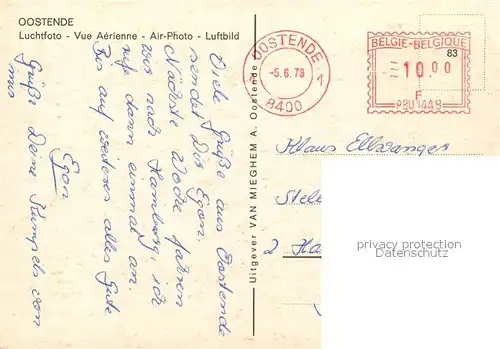 OOSTENDE
Luchtfoto - Vue Aérienne - Air-Photo - Luftbild
OOSTENDE
-5.6.78
1 1
8400
BELGIE-BELGIQUE
83
10.00
F
PBU 1448
Uitgever VAN MIEGHEM A. Oostende
Viele Grüße aus Oostende
sendet Dir Egon.
Nächste Woche fahren
wir nach Hamburg, ich
rufe dann einmal an.
Bis auf weiteres alles Gute
Egon
Grüße Deine Kumpels von
mir
Klaus Ellwanger
Stel
2 Ha
privacy protection
Datenschutz